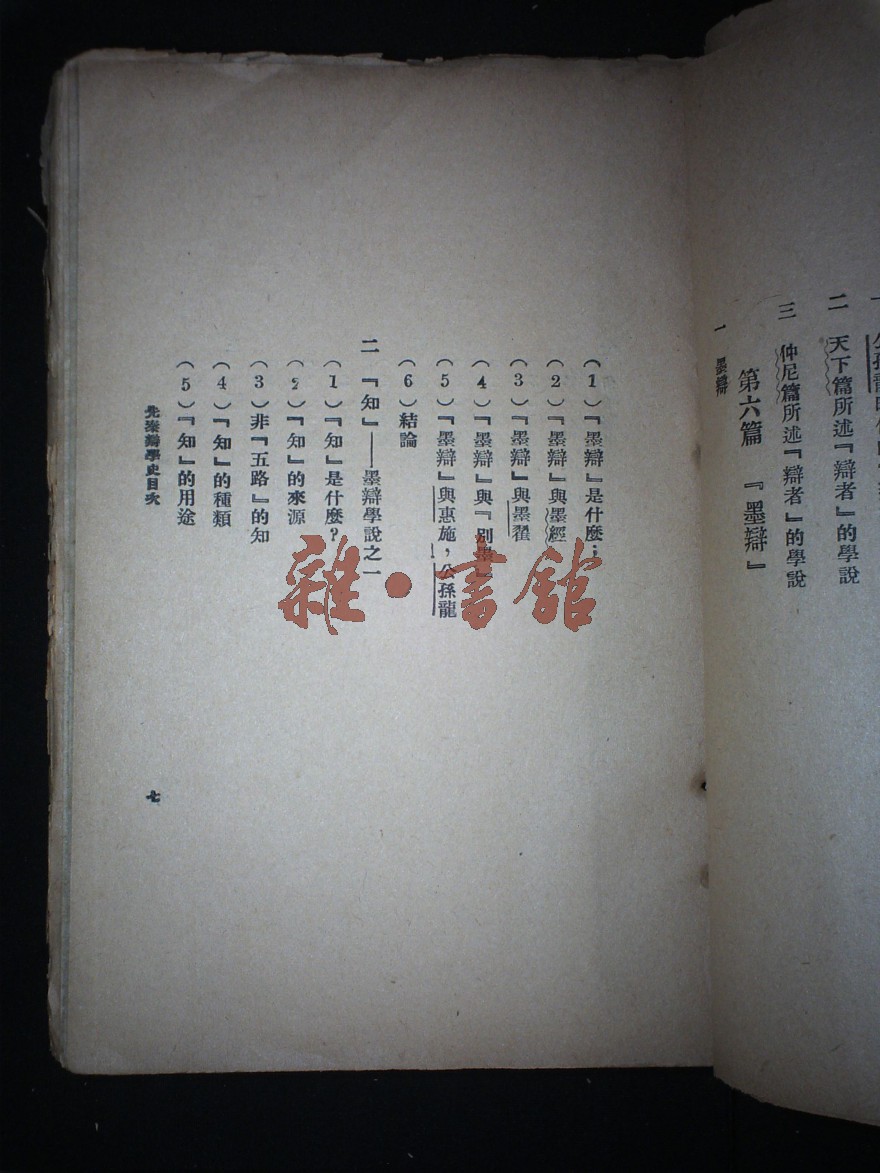 二　天下篇所述『辯者』的學說
三　仲尼篇所述『辯者』的學說
第六篇　『墨辯』
一　墨辯
（1）『墨辯』是什麼；
（2）『墨辯』與墨經
（3）『墨辯』與墨翟
（4）『墨辯』與『別墨』
（5）『墨辯』與惠施，公孫龍
（6）結論
二　『知』——墨辯學說之一
（1）『知』是什麼？
（2）『知』的來源
（3）非『五路』的知
（4）『知』的種類
（5）『知』的用途
先秦辯學史目次
七
雜·書館